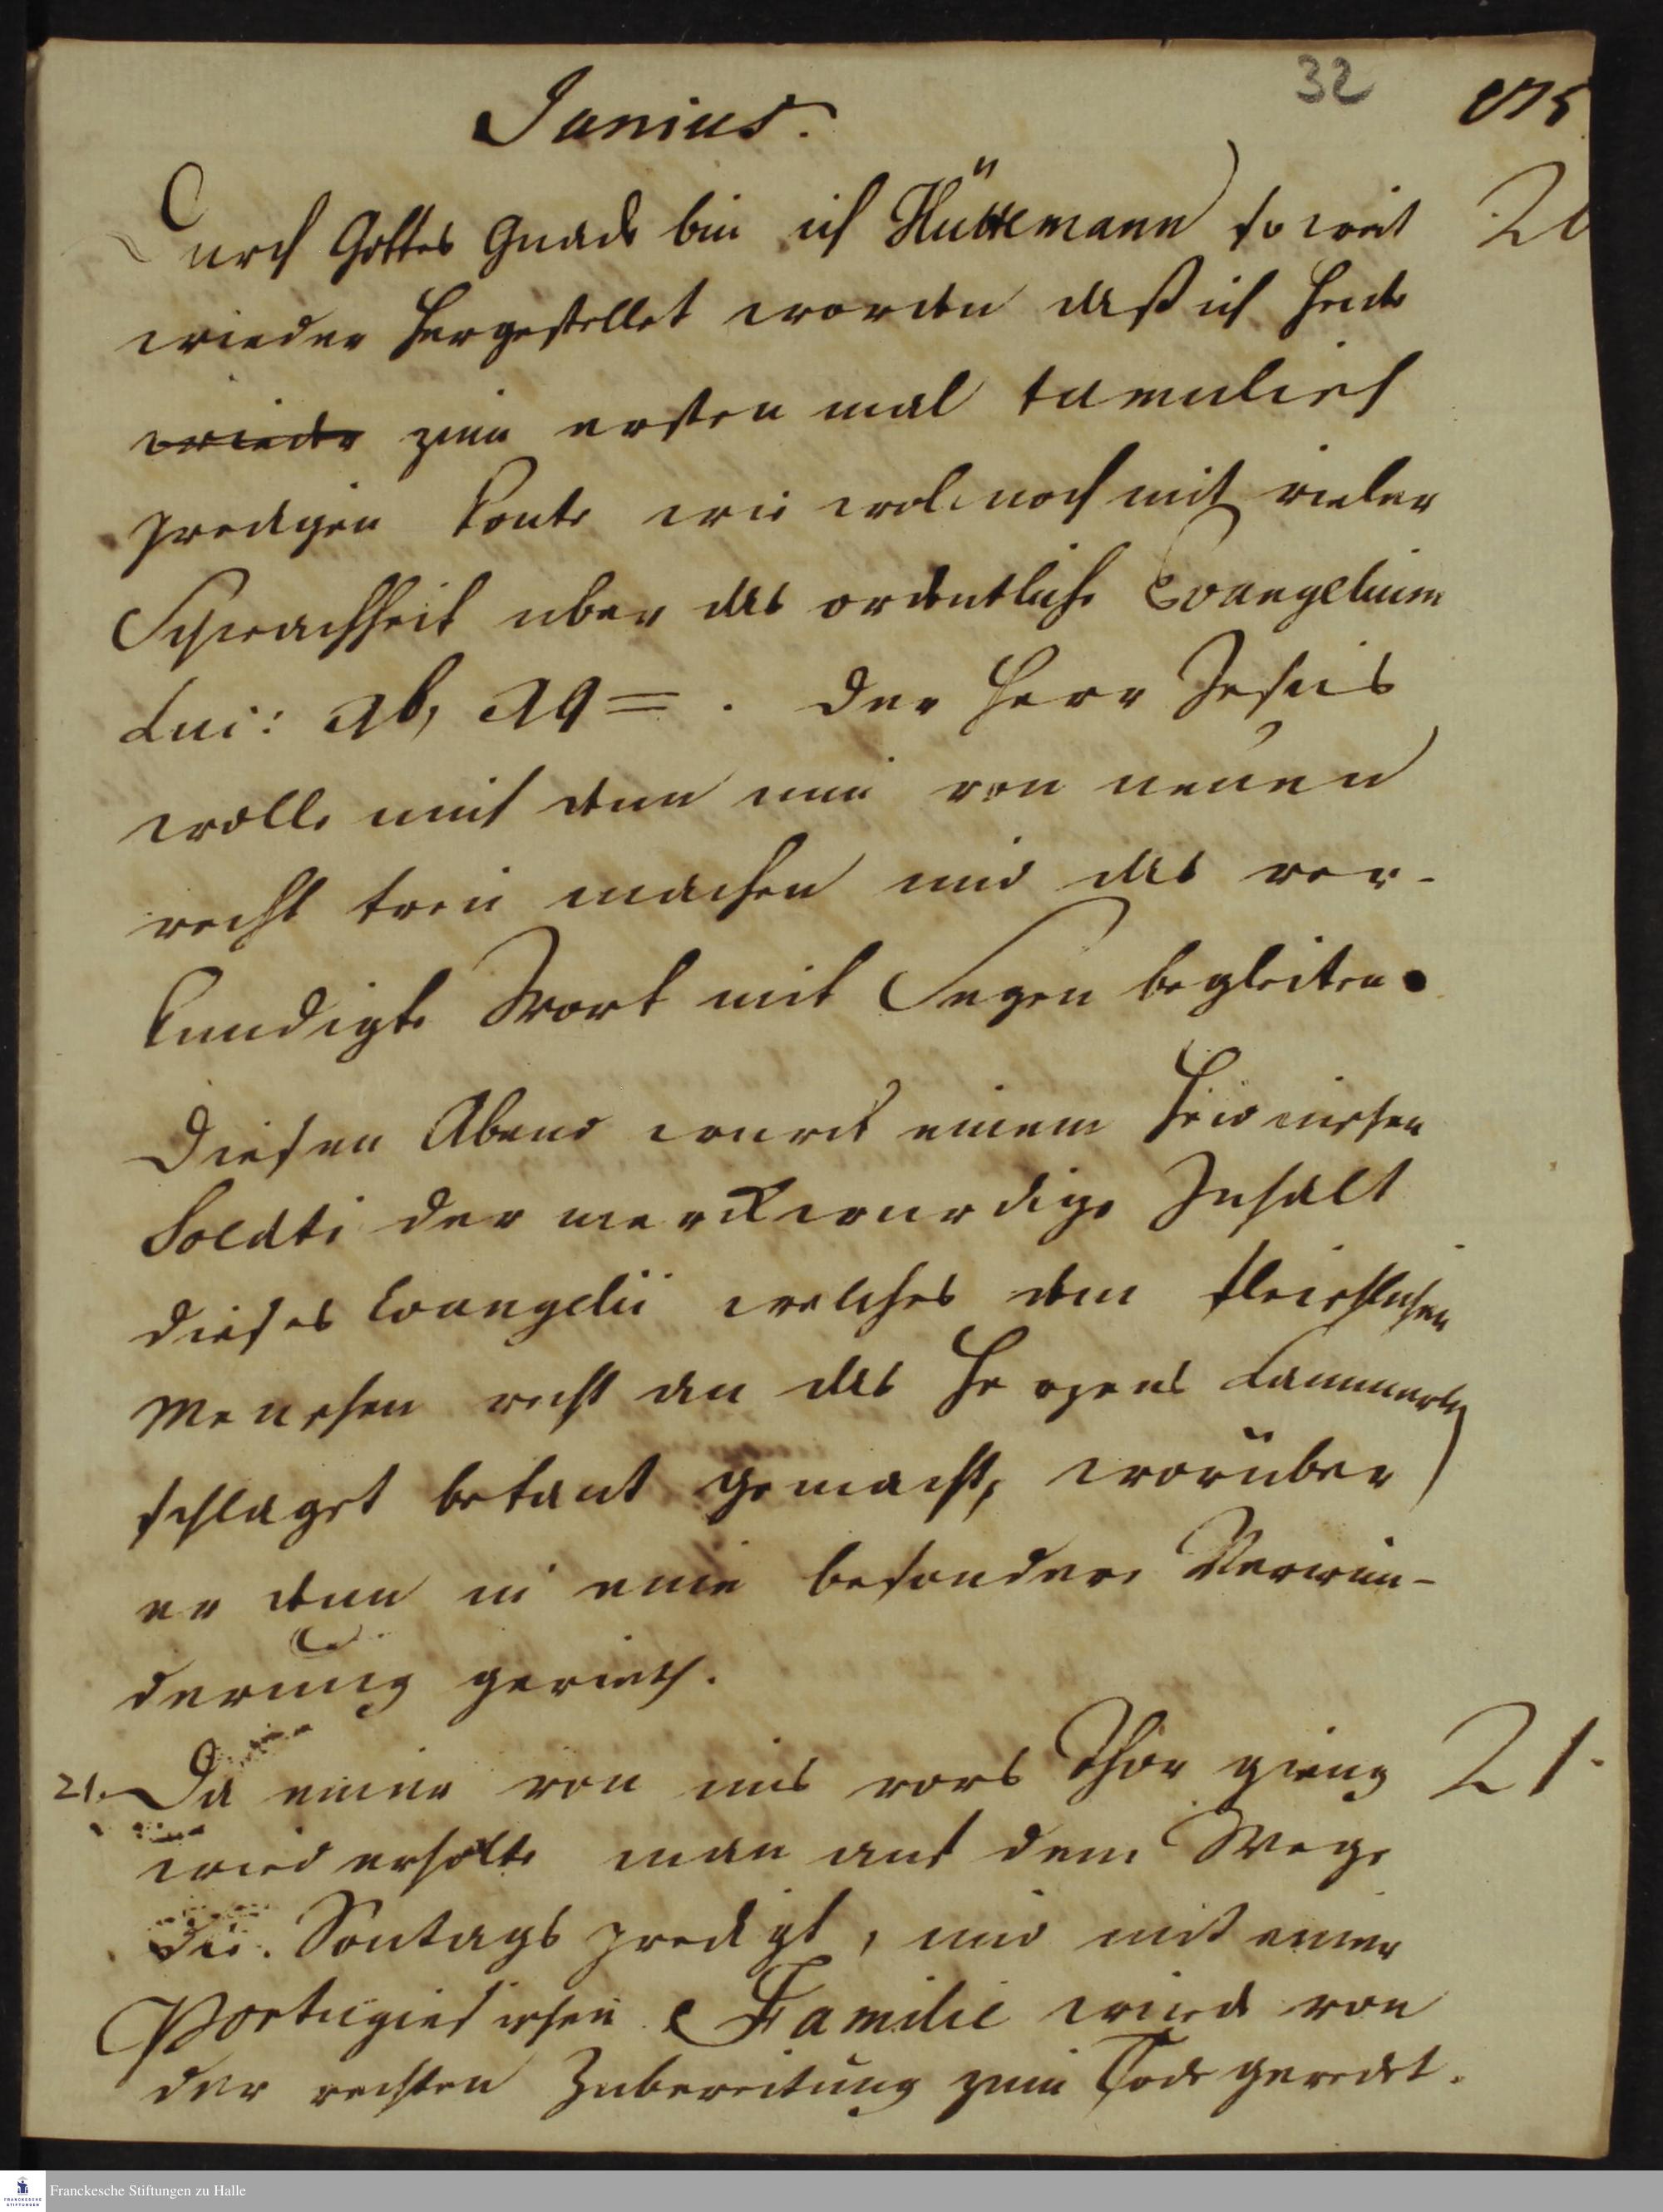 32
Junius.
Durch Gottes Gnade bin ich Hüttemann so weit 20
wieder hergestellet worden daß ich heute
wieder zum ersten mal tamulisch
predigen konte wie wol noch mit vieler
Schwachheit uber das ordentliche Evangelium
Luc: 16, 19 = . Der Herr Jesus
wolle mich denn nun von neuen
recht treu machen und das ver-
kundigte Wort mit Segen begleiten.
Diesen Abend wurd einem heidnischen
Soldaten der merckwurdige Inhalt
dieses Evangelii welches dem fleischlichen
Menschen recht an das Herzens
schlaget bekant gemacht, worüber
er denn in eine besondere Verwun-
derung gerieth.
21. Da einer von uns vors Thor gieng 21.
wiederholte man auf dem Wege
die Sontags predigt, und mit einer
Portugiesischen Familie wurde von
der rechten Zubereitung zum Tode geredet.
Franckesche Stiftungen zu Halle
FRANCKESCHE STIFTUNGEN